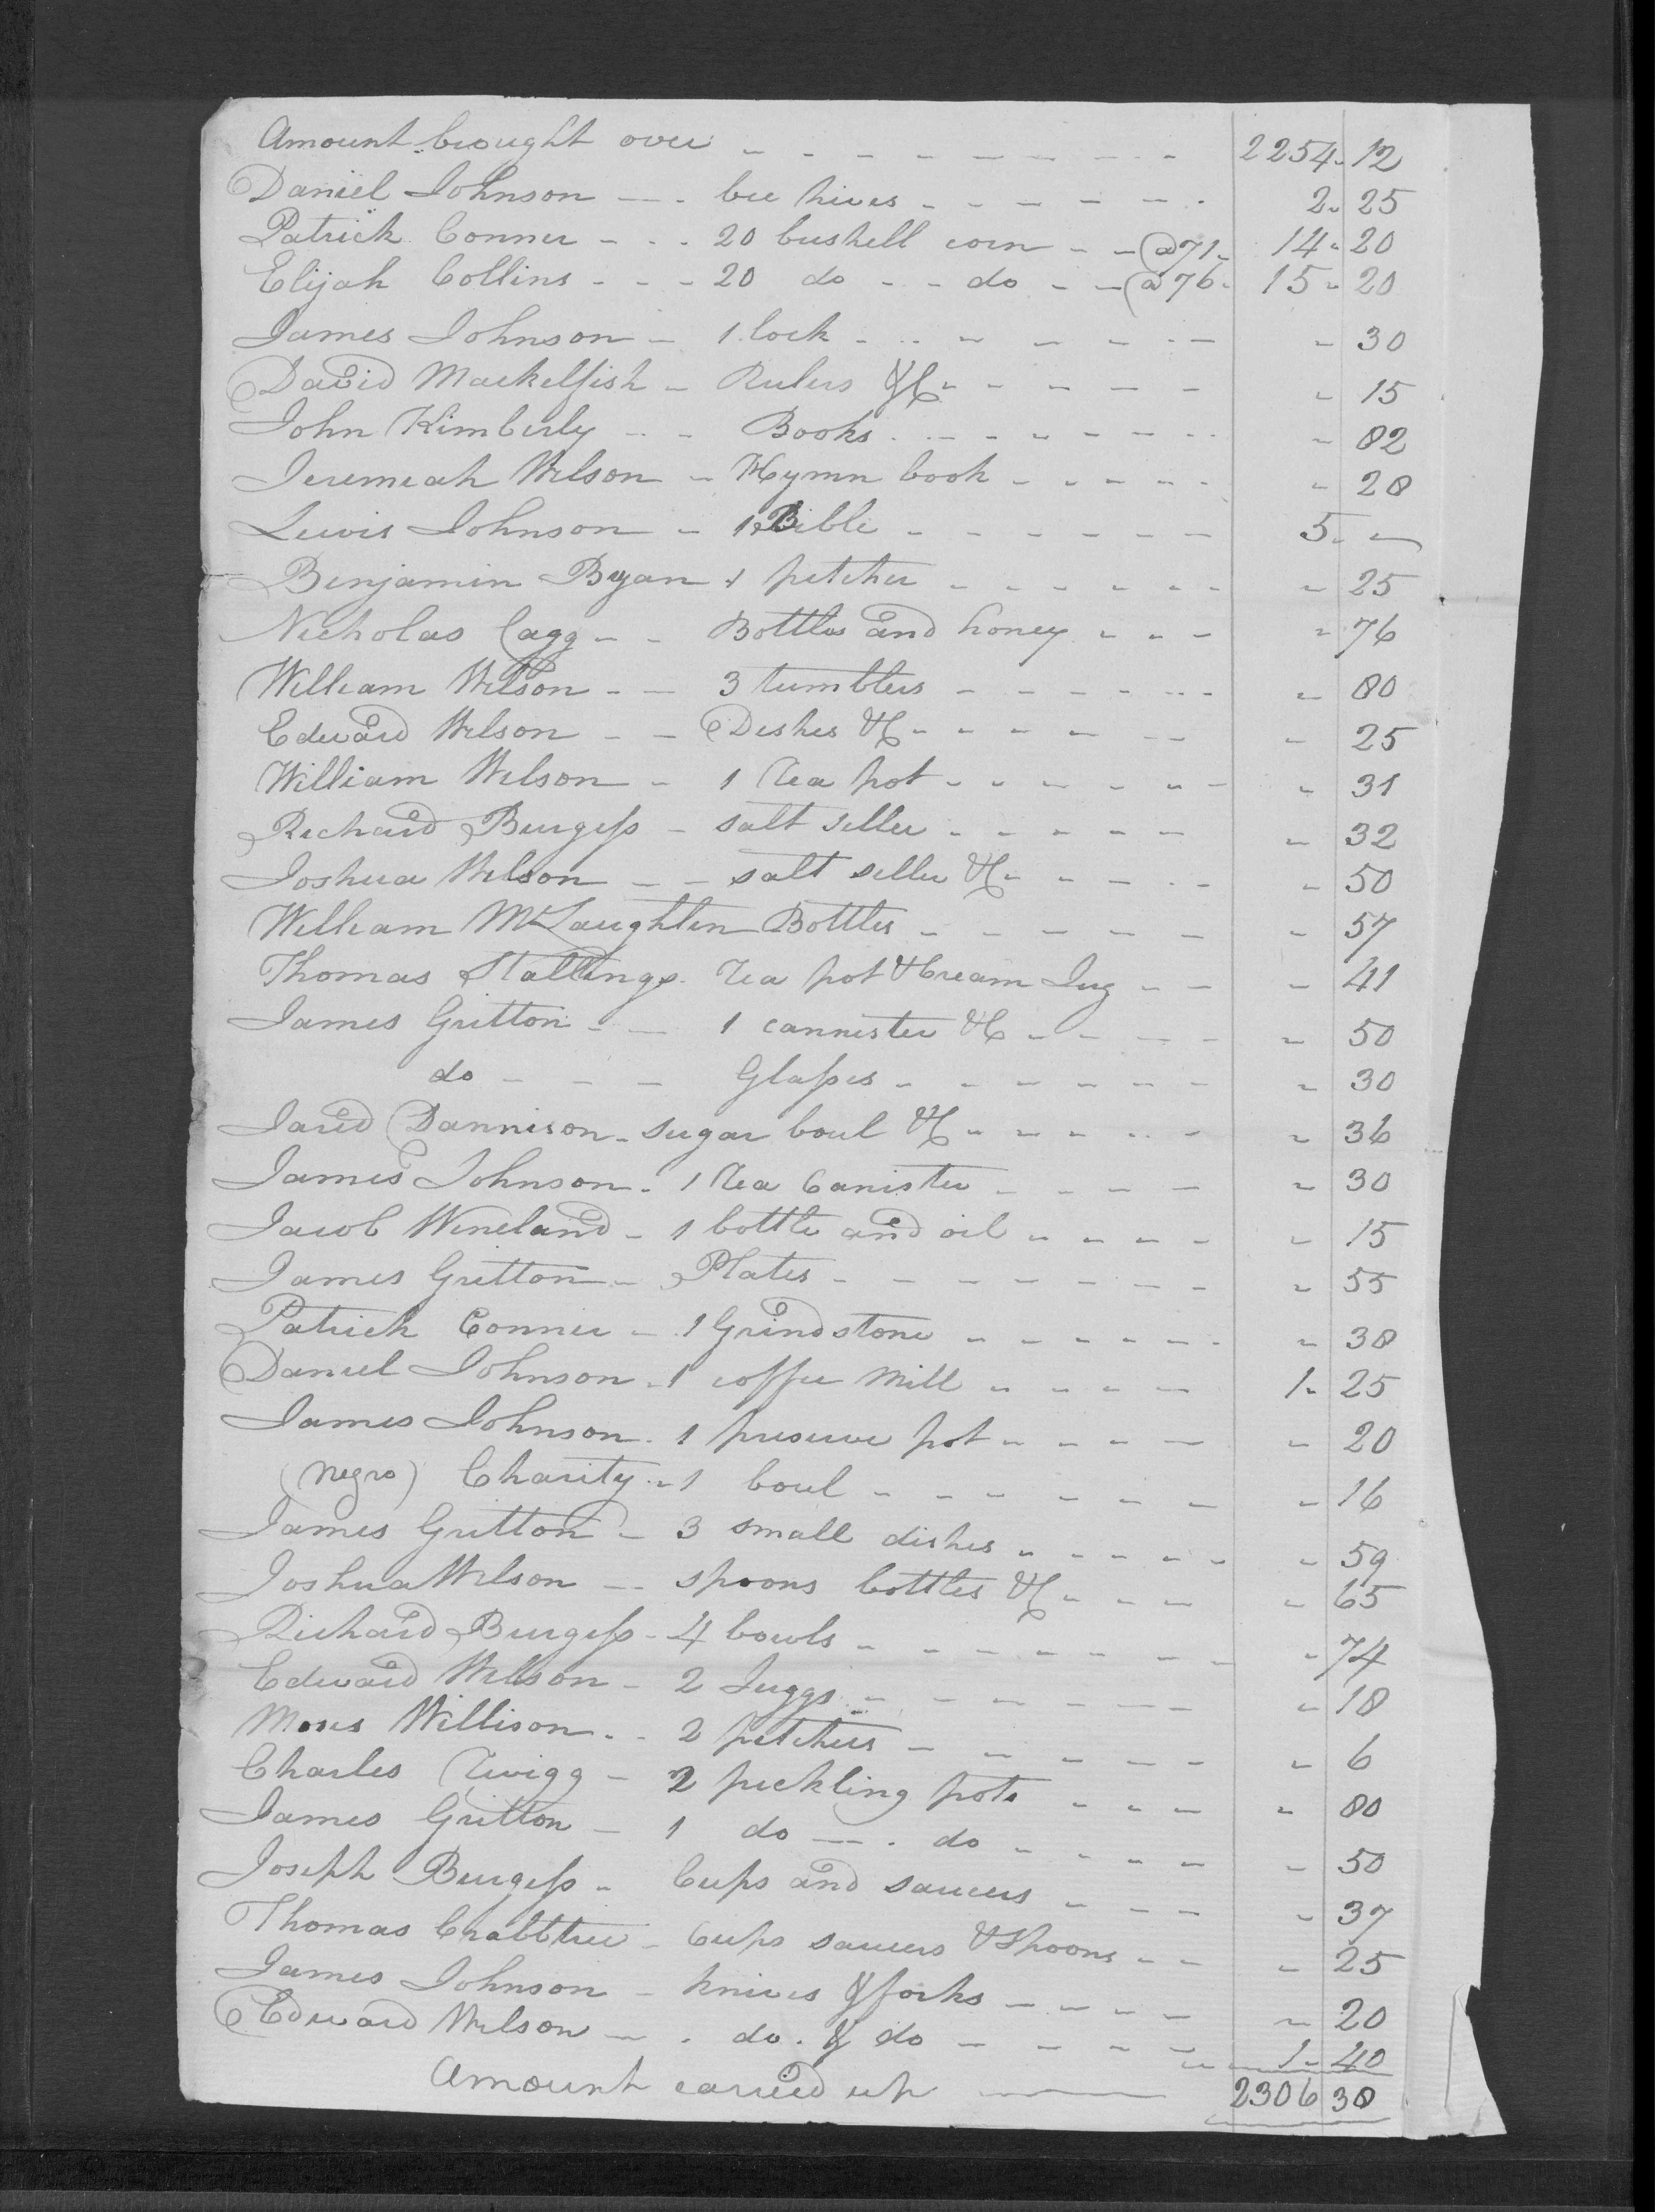 Amount brought over - - - - - - - - 2254 - 12
Daniel Johnson - - bee hives - - - - - - 2 - 25
Patrick Conner - - - 20 bushell corn - - @ 71 - 14 - 20
Elijah Collins - - - 20 do - - do - - @ 76 - 15 - 20
James Johnson - 1 lock - - - - - - - - 30
David Mackelfish - Rulers &C - - - - - - 15
John Kimberly - - Books - - - - - - - - 82
Jeremeah Wilson - Hymn book - - - - - - 28
Lewis Johnson - 1 Bible - - - - - - 5 - -
Benjamin Ryan 1 pitcher - - - - - - - 25
Nicholas Cagg - - Bottles and honey - - - - 76
William Wilson - - 3 tumblers - - - - - - - 80
Edward Wilson - - Dishes &C - - - - - - - 25
William Wilson - 1 Tea pot - - - - - - - 31
Richard Burgess - salt seller - - - - - - 32
Joshua Wilson - - salt seller &C - - - - - - 50
William McLaughlin Bottles - - - - - - - 57
Thomas Stallings - Tea pot & Cream Jug - - - 41
James Gritton - - 1 cannister &C - - - - - 50
do - - - Glasses - - - - - - - 30
Jared Dannison - sugar boul &C - - - - - - 36
James Johnson - 1 Tea Canister - - - - - 30
Jacob Wineland - 1 bottle and oil - - - - - 15
James Gritton - Plates - - - - - - - - 55
Patrick Conner - 1 Grindstone - - - - - - - 38
Daniel Johnson - 1 coffee Mill - - - - 1 - 25
James Johnson - 1 preserve pot - - - - - 20
(negro) Charity - 1 boul - - - - - - - - 16
James Gritton - 3 small dishes - - - - - - 59
Joshua Wilson - spoons bottles &C - - - - 65
Richard Burgess - 4 bowls - - - - - - - - 74
Edward Wilson - 2 Juggs - - - - - - - 18
Moses Willison - - 2 pitchers - - - - - - - 6
Charles Twigg - 2 pickling pots - - - - 80
James Gritton - 1 do - - do - - - - - - 50
Joseph Burgess - Cups and saucers - - - - 37
Thomas Crabbtree - Cups saucers & Spoons - - - 25
James Johnson - knives & forks - - - - - 20
Edward Wilson - - do. & do - - - - - 1 - 40
Amount carried up - 2306 38